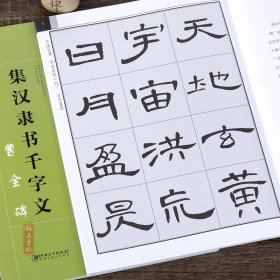 天地玄黄
宇宙洪巟
日月盈昃
集汉隶书千字文
曹全碑